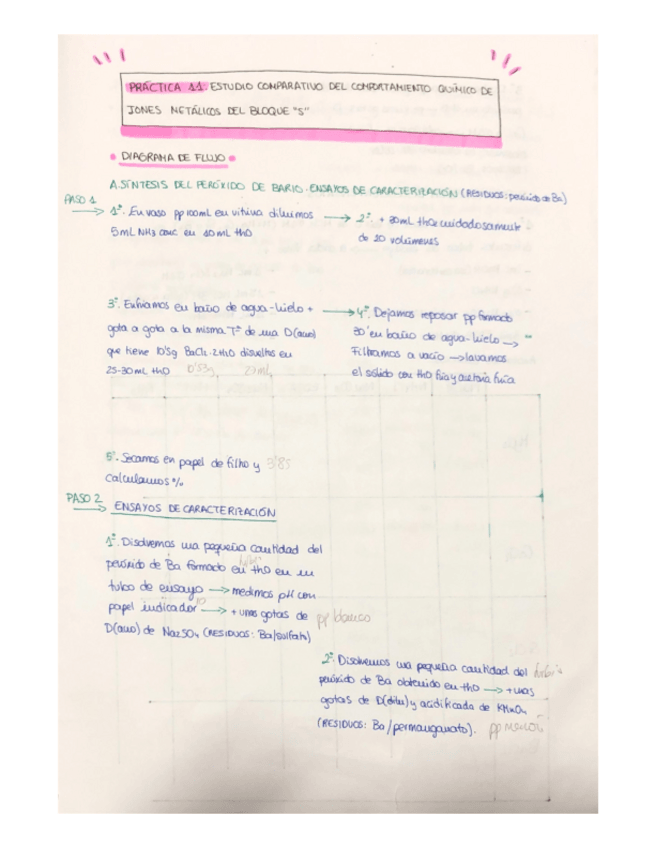 PRÁCTICA 11. ESTUDIO COMPARATIVO DEL COMPORTAMIENTO QUÍMICO DE
IONES METÁLICOS DEL BLOQUE "S"
DIAGRAMA DE FLUJO
A. SÍNTESIS DEL PERÓXIDO DE BARIO. ENSAYOS DE CARACTERIZACIÓN (RESIDUOS: peróxido de Ba)
PASO 1
1º. En vaso pp 100mL en vitrina diluimos
5mL NH3 conc en 10mL H2O
2º. + 30mL H2O2 cuidadosamente
de 20 volúmenes
3º. Enfriamos en baño de agua-hielo +
gota a gota a la misma Tª de una D(acuo)
que tiene 10'5g BaCl2·2H2O disueltos en
25-30mL H2O 10'53g 25mL
4º. Dejamos reposar pp formado
30' en baño de agua-hielo →
Filtramos a vacío → lavamos
el sólido con H2O fría y acetona fría
5º. Secamos en papel de filtro y 3'85
calculamos %
PASO 2
ENSAYOS DE CARACTERIZACIÓN
1º. Disolvemos una pequeña cantidad del
peróxido de Ba formado en H2O en un
tubo de ensayo → medimos pH con
papel indicador 10 → + unas gotas de pp blanco
D(acuo) de Na2SO4 (RESIDUOS: Ba/sulfato)
2º. Disolvemos una pequeña cantidad del
peróxido de Ba obtenido en H2O → + unas
gotas de D(dilu) y acidificada de KMnO4
(RESIDUOS: Ba/permanganato). pp marrón